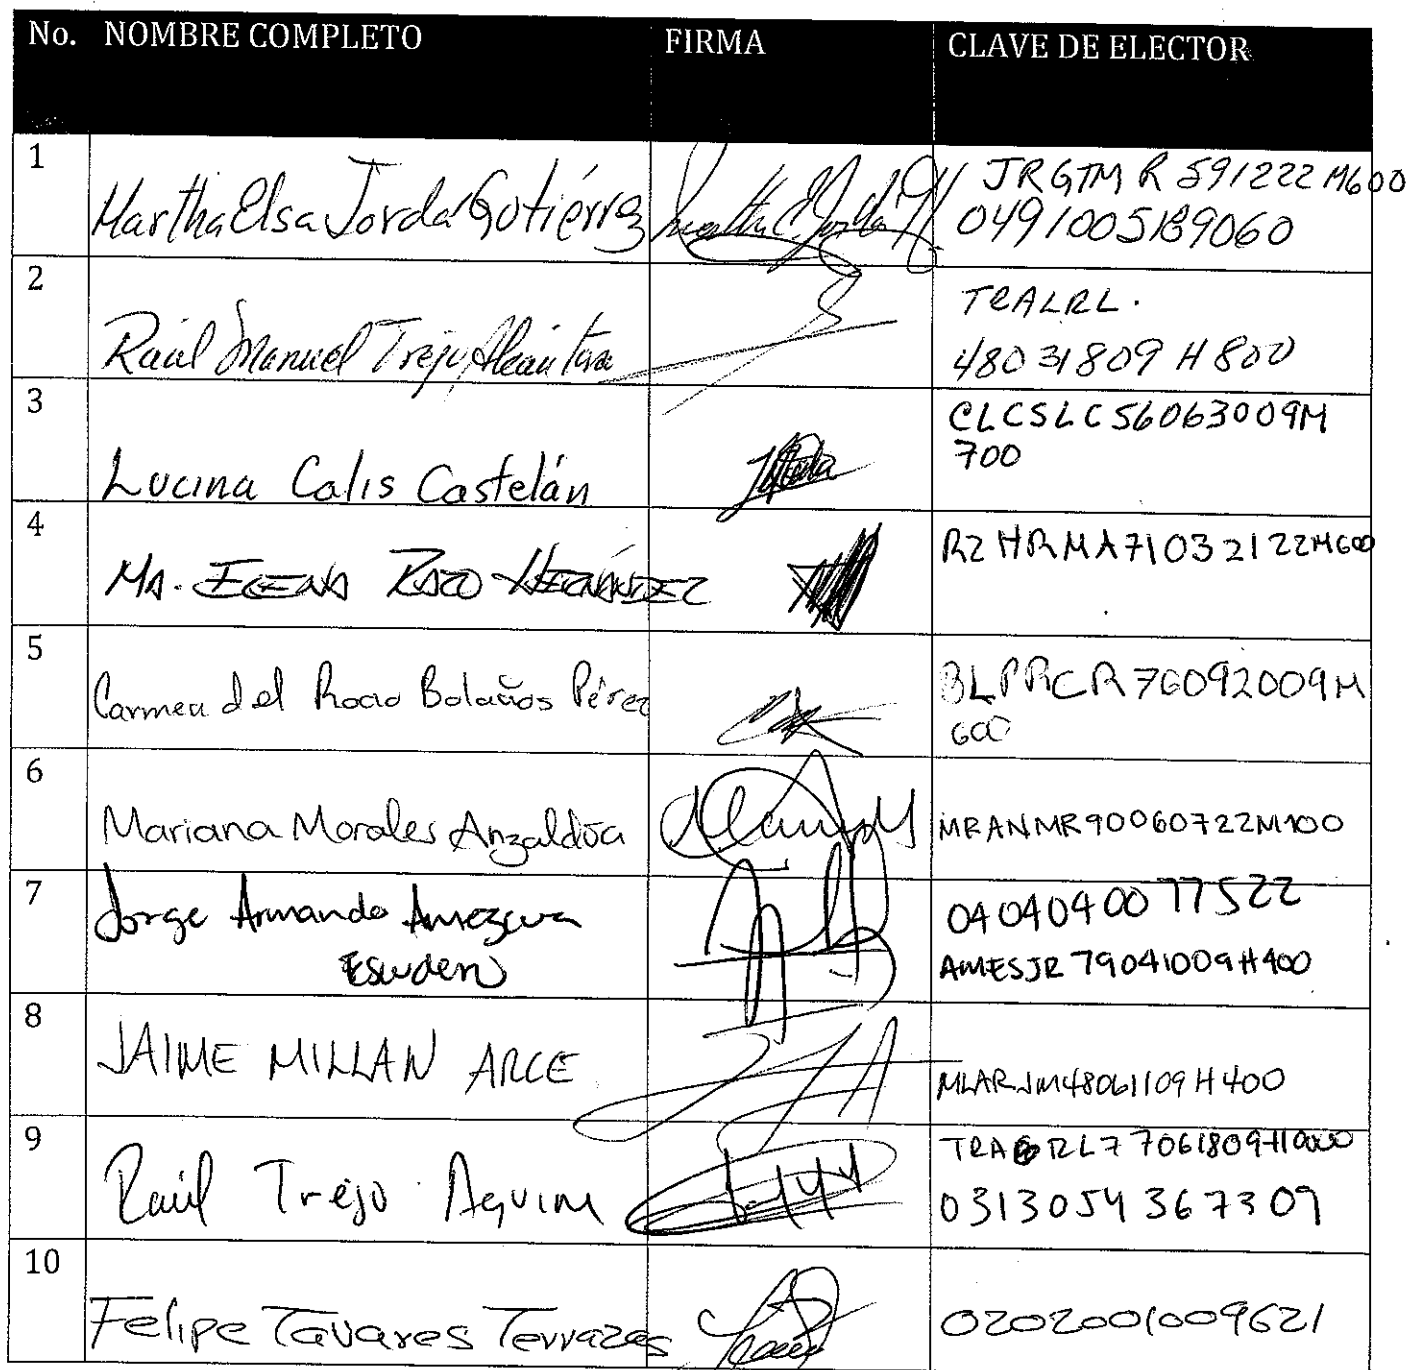 No. NOMBRE COMPLETO FIRMA CLAVE DE ELECTOR
1 Martha Elsa Jorda Gutiérrez JRGTMR591222M600
0491005189060
2 Raúl Manuel Trejo Alcántara TRALRL.
48031809H800
3 Lucina Calis Castelán CLCSLC56063009M
700
4 Ma. Elena Razo Hernández RZHRMA71032122M600
5 Carmen del Rocio Bolaños Pérez BLPRCR76092009M
600
6 Mariana Morales Anzaldúa MRANMR90060722M100
7 Jorge Armando Amezcua 0404040077522
Escudero AMESJR79041009H400
8 JAIME MILLAN ARCE MLARJM48061109H400
9 Raúl Trejo
0313054367309
10 Felipe Tavares Terrazas 0202001009621